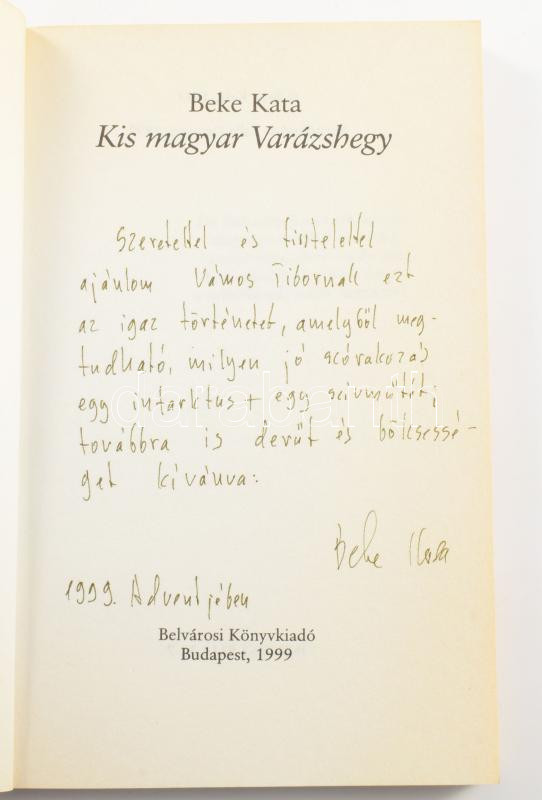 Beke Kata
Kis magyar Varázshegy
Szeretettel és tisztelettel
ajánlom Vámos Tibornak ezt
az igaz történetet, amelyből meg-
tudható, milyen jó szórakozás
egy infarktus + egy szívműtét;
továbbra is derűt és bölcsessé-
get kívánva:
Beke Kata
1999. Adventjében
Belvárosi Könyvkiadó
Budapest, 1999
darabanth